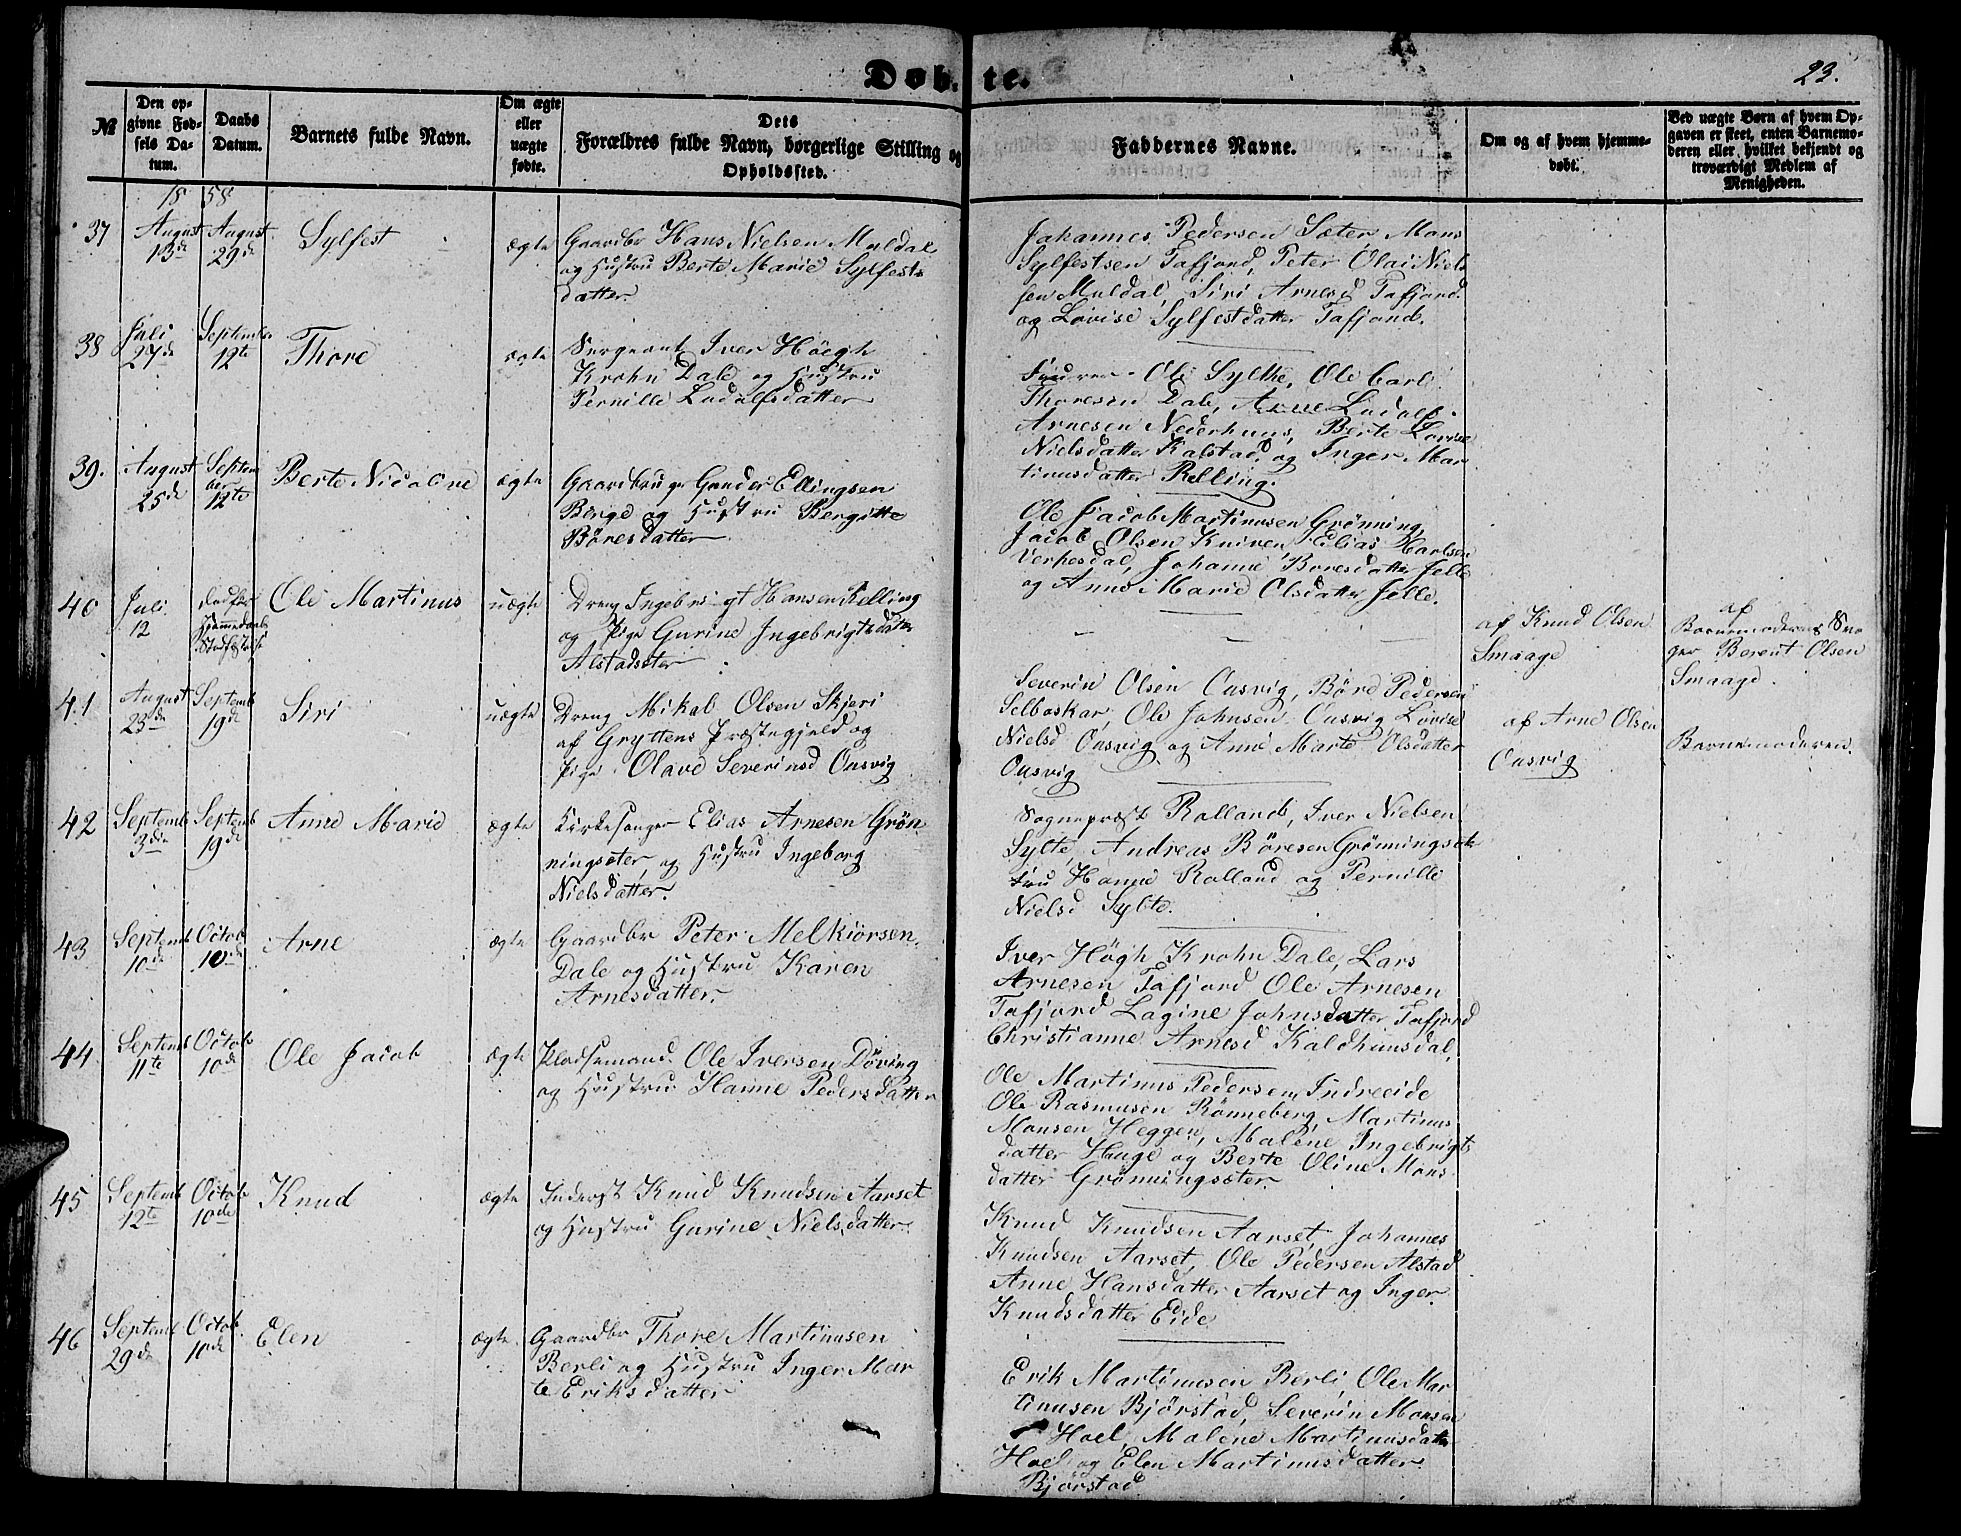 Døb- te.
23.
№
Den opgivne Fødsels Datum.
Daabs Datum.
Barnets fulde Navn.
Om ægte eller uægte fødte.
Dets Forældres fulde Navn, borgerlige Stilling og Opholdssted.
Faddernes Navne.
Om og af hvem hjemmedøbt.
Ved uægte Børn af hvem Opgaven er skeet, enten Barnemoderen eller hvilket bekjendt og troværdigt Medlem af Menigheden.
1858
37
August 13de
August 29de
Sylfest
ægte
Gaardbr Hans Nielsen Muldal
og Hustru Berte Marie Sylfests
datter.
Johannes Pedersen Sæter Mons
Sylfestsen Tafjord, Peter Olai Niel
sen Muldal, Siri Arnesd Tafjord
og Lovise Sylfestdatter Tafjord.
38
Juli 27de
September 12te
Thore
ægte
Sergeant Iver Höegh
Krohn Dale og Hustru
Pernille Ludolfsdatter
Ole Sylthe, Ole Carl
Thoresen Dale, Arne Ludolf
Arnesen Nederhuus, Berte Lovise
Nielsdatter Kalstad og Inger Mar
tinusdatter Relling.
39.
August 25de
September 12te
Berte Nicoline
ægte
Gaardbruger Gunder Ellingsen
Berge og Hustru Bergitte
Böresdatter
Ole Jacob Martinusen Grönning
Jacob Olsen Kniven Elias Karlsen
Verpesdal, Johanne Boresdatter Jelle
og Anne Marie Olsdatter Jelle.
40
Juli 12
död før Hjemmedaabs Stadfæstelse
Ole Martinus
uægte
Dreng Ingebrigt Hansen Relling
og Pige Gurine Ingebrigtsdatter
Alstadsæter
af Knud Olsen
Smaage
af
Barnemoderens Svo
ger Berent Olsen
Smaage.
41
August 23de
Septemb 19de
Siri
uægte
Dreng Mikal Olsen Skjeri
af Gryttens Præstegjeld og
Pige Olave Severinsd Onsvig
Severin Olsen Onsvig, Börd Pedersen
Selboskar, Ole Johnsen Onsvig Lovise
Nielsd Onsvig og Anne Marte Olsdatter
Onsvig
af Arne Olsen
Onsvig
Barnemoderen.
42
Septemb 3die
Septemb 19de
Anne Marie
ægte
Kirkesanger Elias Arnesen Grön
ningsæter, og Hustru Ingeborg
Nielsdatter.
Sognepræst Rolland, Iver Nielsen
Sylte, Andreas Böresen Grönningsæt
Fru Hanne Rolland og Pernille
Nielsd Sylte.
43
Septemb 10de
Octob 10de
Arne
ægte
Gaardbr Peter Melkiorsen
Dale og Hustru Karen
Arnesdatter.
Iver Högh Krohn Dale, Lars
Arnesen Tafjord Ole Arnesen
Tafjord Lagine Johnsdatter Tafjord
Christianne Arnesd Kaldhuusdal.
44
Septemb 11te
Octob 10de
Ole Jacob
ægte
Pladsemand Ole Iversen Döving
og Hustru Hanne Pedersdatter
Ole Martinus Pedersen Indreeide
Ole Rasmusen Rönneberg, Martinus
Monsen Heggen, Malene Ingebrigts
datter Hauge og Berte Oline Mons
datter Grönningsæter
45
Septemb 12te
Octob 10de
Knud
ægte
Inderst Knud Knudsen Aarset
og Hustru Gurine Nielsdatter.
Knud Knudsen Aarset, Johannes
Knudsen Aarset, Ole Pedersen Alstad
Anne Hansdatter Aarset og Inger
Knudsdatter Eide
46
Septemb 29de
Octob. 10de
Elen
ægte
Gaardbr Thore Martinusen
Berli og Hustru Inger Mar
te Eriksdatter
Erik Martinusen Berli, Ole Mar
tinusen Bjørstad, Severin Monsen
Hoel, Malene Martinusdatter
Hoel og Elen Martinusdatter
Bjørstad